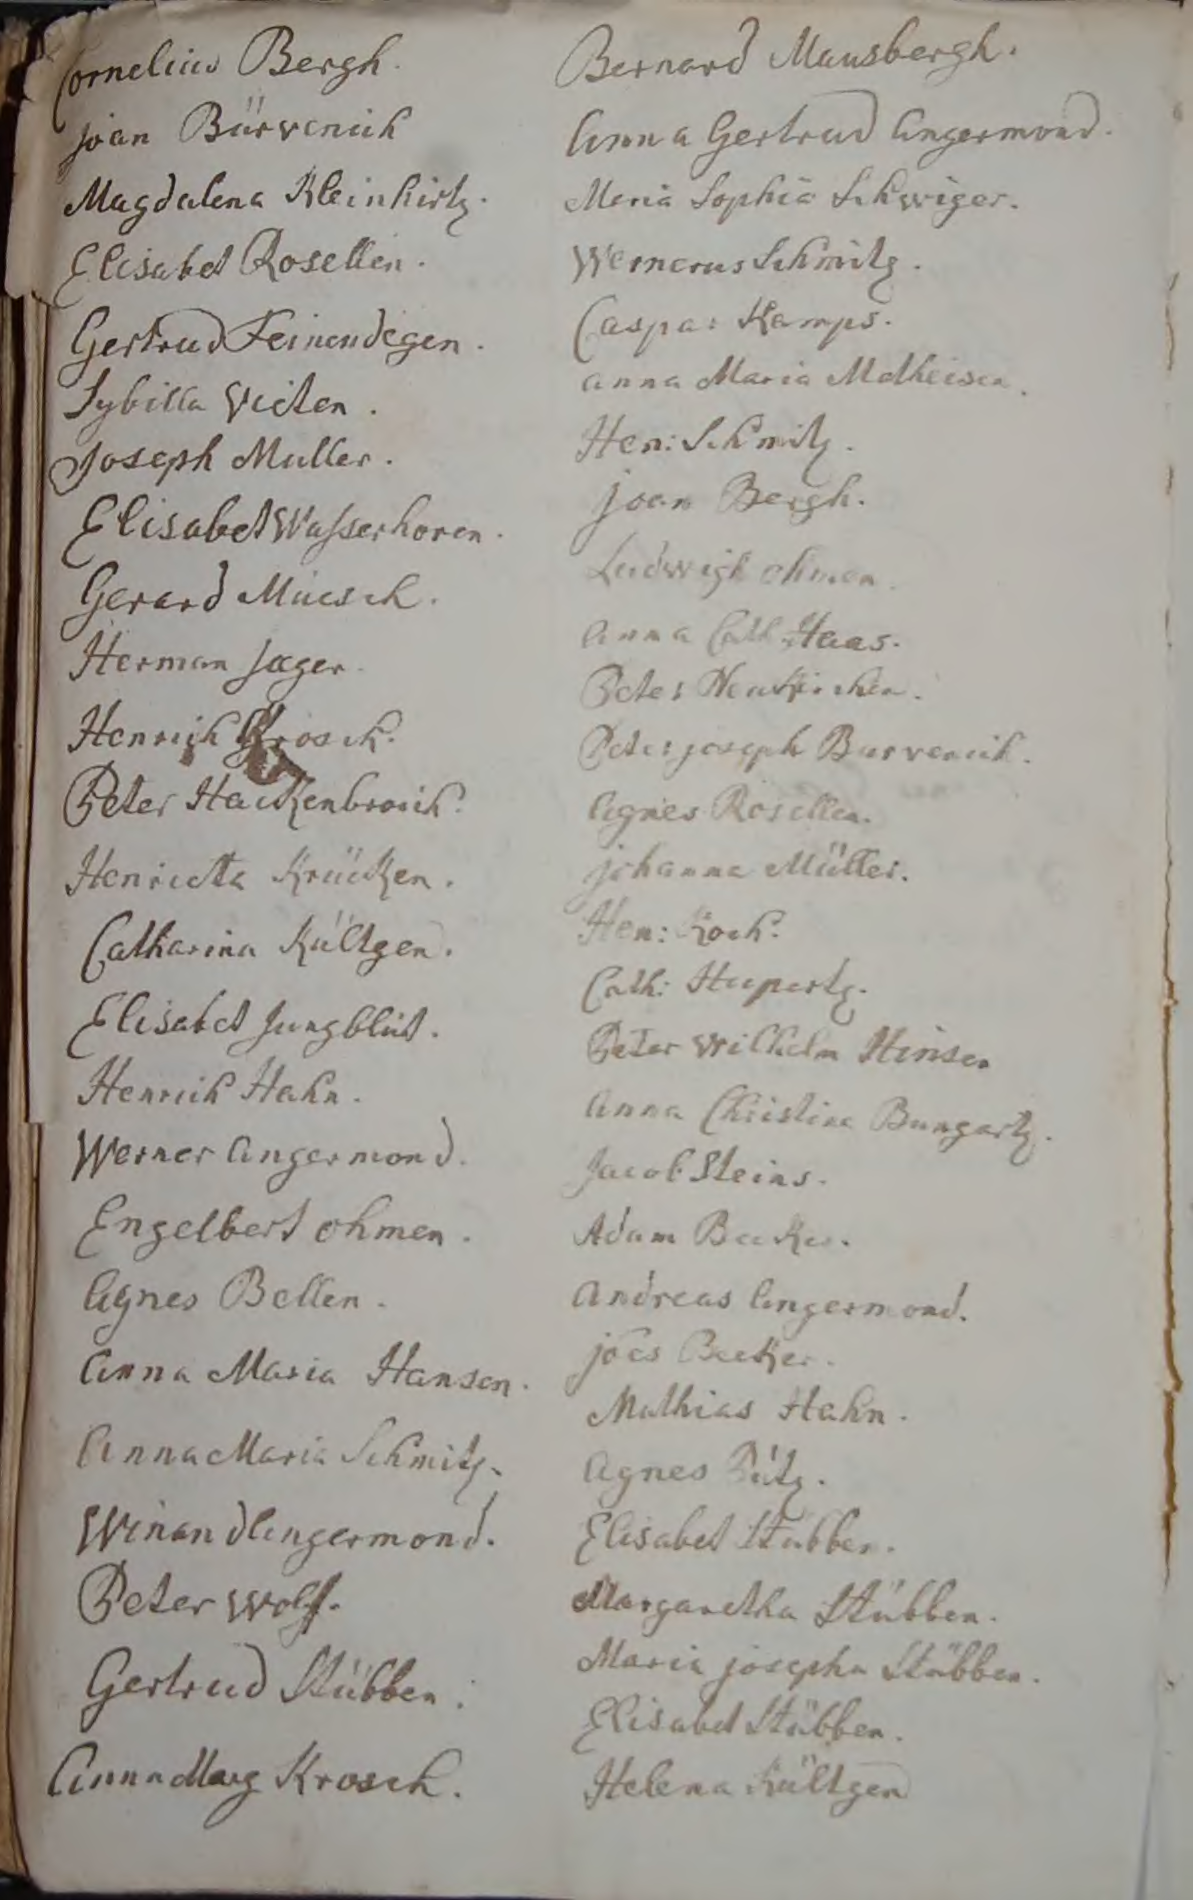 Cornelius Bergh.
joan Bürvenich
Magdalena Kleinhirtz.
Elisabet Rosellen.
Gertrud Feinendegen.
Sybilla Vieten.
Joseph Muller.
Elisabet Wasserhoven.
Gerard Müesch.
Herman Jæger.
Henrich Krosch.
Peter Hackenbroich.
Henrietta Krücken.
Catharina Kültgen.
Elisabet Jungblüt.
Henrich Hahn.
Werner Angermond.
Engelbert ohmen.
Agnes Bellen.
Anna Maria Hansen.
Anna Maria Schmitz.
Winand Angermond.
Peter Wolff.
Gertrud Stübben.
Anna Marg Krosch.
Bernard Mausbergh.
Anna Gertrud Angermond.
Maria Sophia Schwiger.
Wernerus Schmitz.
Caspar Kamps.
anna Maria Matheisen.
Hen: Schmitz.
joan Bergh.
Ludwigh ohmen.
Anna Cath. Haas.
Peter Neukirchen.
Peter joseph Burvenich.
Agnes Rosellen.
johanna Müller.
Hen: Koch.
Cath: Hupertz.
Peter Wilhelm Hinsen
Anna Christina Bungartz.
Jacob Steins.
Adam Becker.
Andreas Angermond.
joes Becker.
Mathias Hahn.
Agnes Pütz.
Elisabet Stubben.
Margaretha Stübben.
Maria josepha Stübben.
Elisabet Stübben.
Helena Kültgen